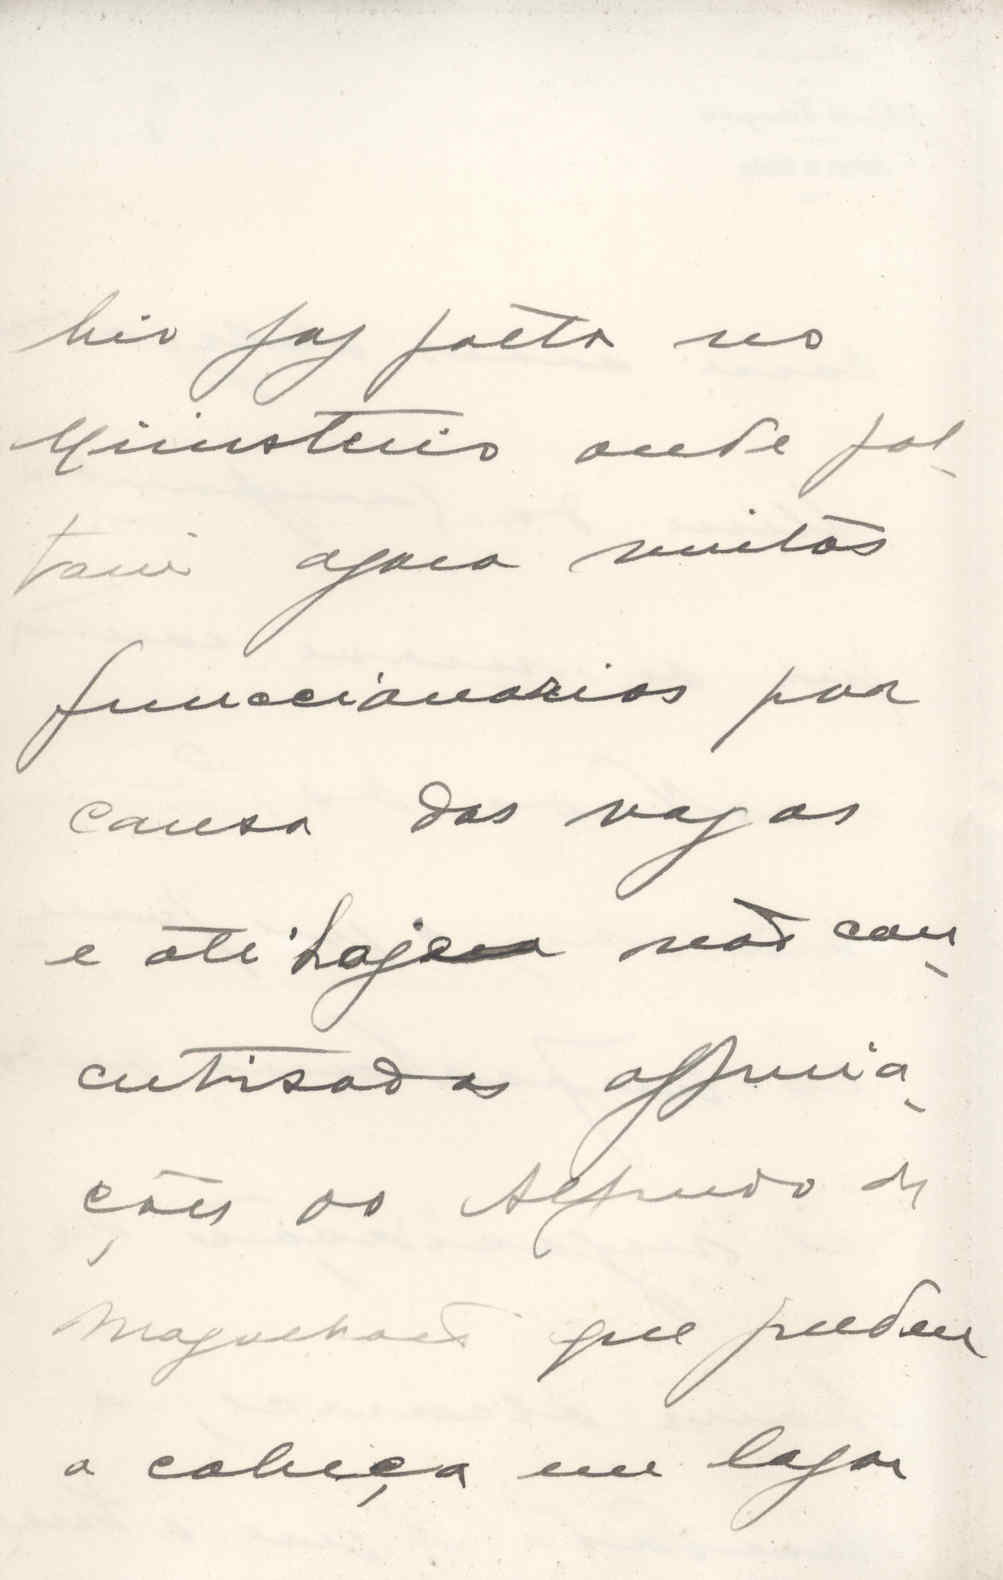 bio faz falta no
Ministerio onde fal-
tam agora muitos
funccionarios por
causa das vagas
e até hoje não con-
cretisadas affeia-
ções ao Alfredo de
Magalhães que perdeu
a cabeça em logar